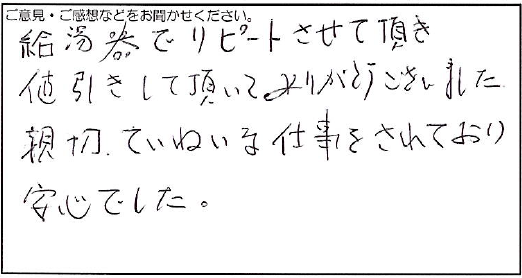 ご意見・ご感想などをお聞かせください。
給湯器でリピートさせて頂き
値引きして頂いてありがとうございました
親切、ていねいな仕事をされており
安心でした。